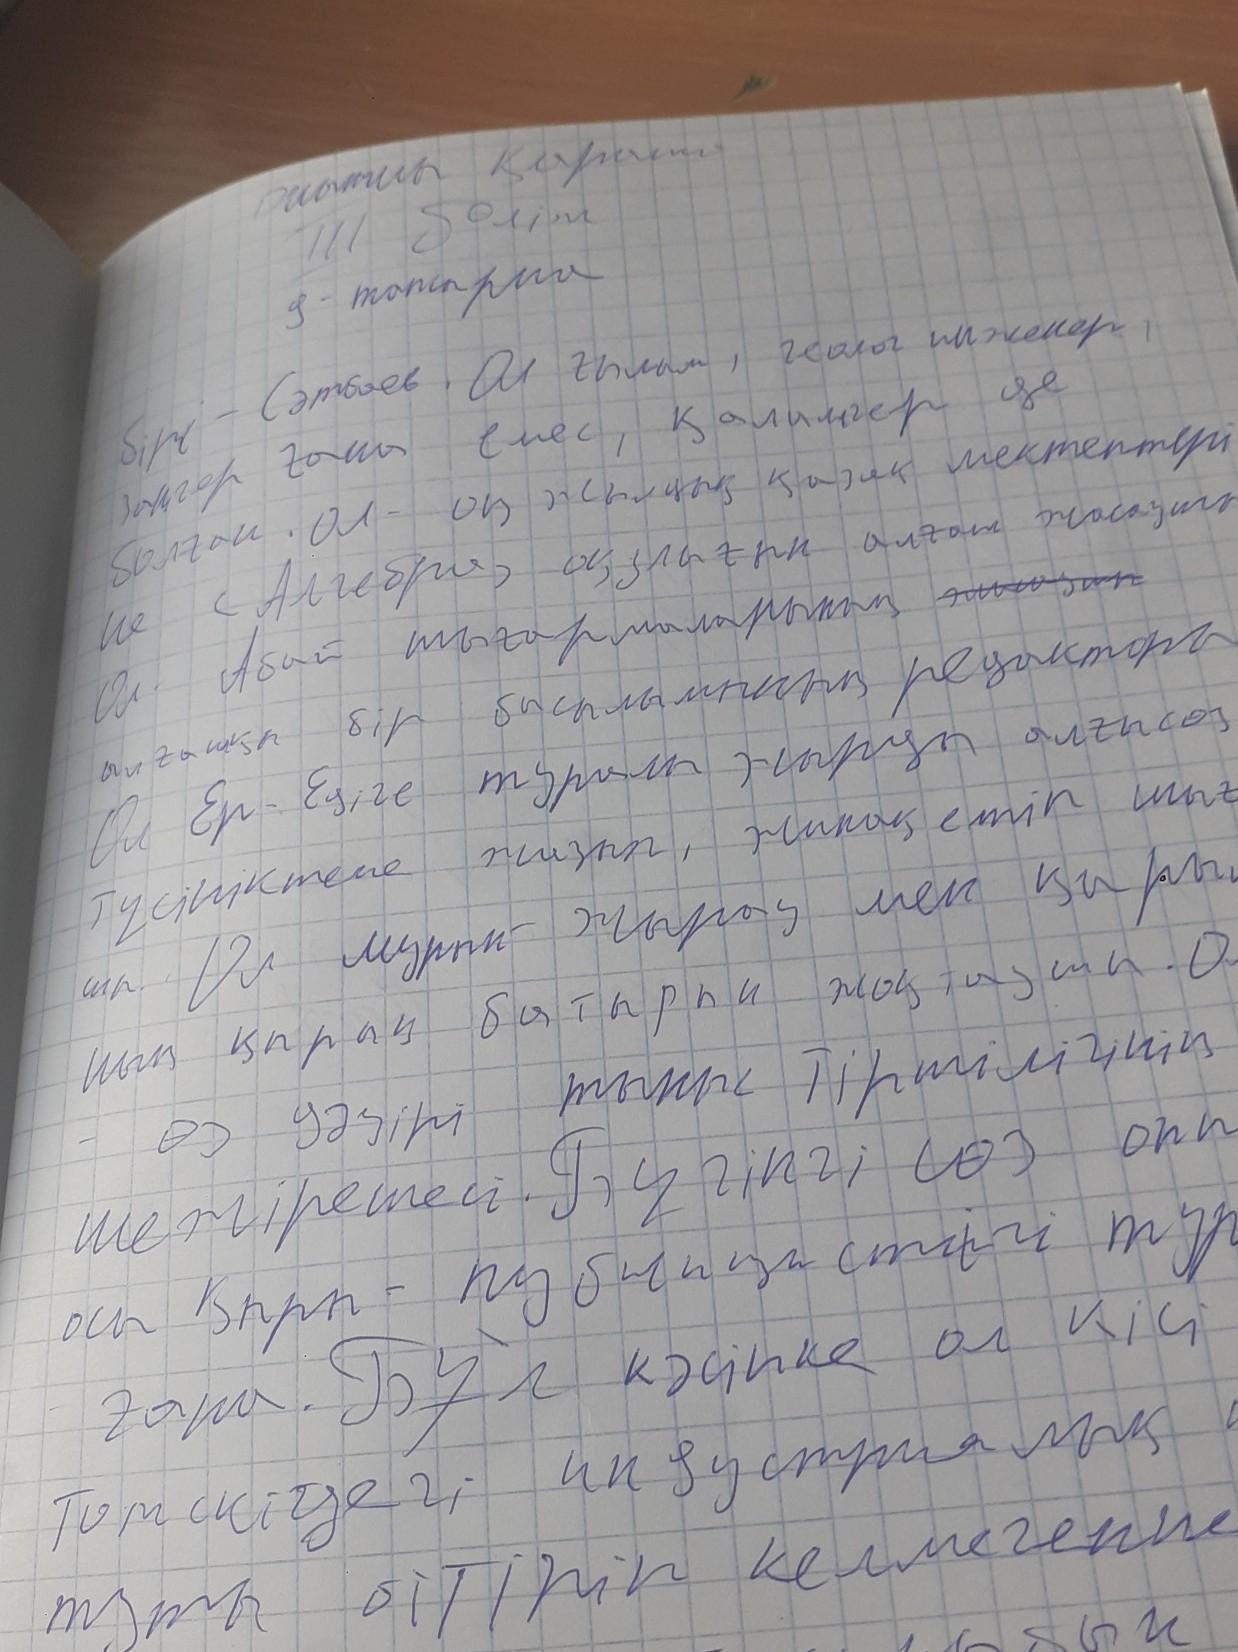 III бөлім
9-тапсырма
бірі - Сәтбаев. Ол ғылым, геолог инженер,
заңгер ғана емес, қаламгер де
болған. Ол - он жылдық қазақ мектептері
не «Алгебра» оқулығын алғаш жасаушы
Ол Абай шығармаларының
алғашқы бір басылымының редакторы
Ол Ер-Едіге туралы жырды алғысөз
түсініктеме жазып, жинақ етіп шығ
шы. Ол мұрын жырау мен қырым
ның қырық батырын жоқтаушы. Ол
- өз дәуірі тыныс тіршілігінің
шежірешесі. Бүгінгі сөз оның
осы қыры - публицистігі тур
ғана. Бұл кәсіпке ол кісі
Томскідегі индустриалық
тұты бітіріп келмегенне